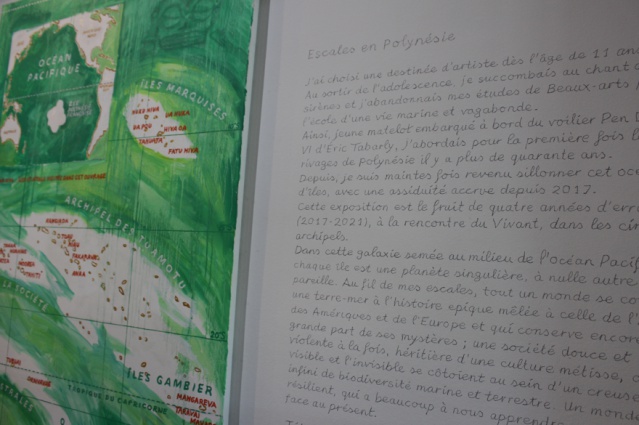 OCÉAN
PACIFIQUE
ÎLES MARQUISES
NUKU HIVA
UA HUKA
UA POU
HIVA OA
TAHUATA
FATU HIVA
ARCHIPEL DES TUAMOTU
LA SOCIÉTÉ
20°
ÎLES GAMBIER
TROPIQUE DU CAPRICORNE
MANGAREVA
TARAVAI
TUBUAI
RAIVAVAE
AUSTRALES
Escales en Polynésie
J'ai choisi une destinée d'artiste dès l'âge de 11 an
Au sortir de l'adolescence, je succombais au chant
sirènes et j'abandonnais mes études de Beaux-arts
l'école d'une vie marine et vagabonde.
Ainsi, jeune matelot embarqué à bord du voilier Pen D
VI d'Éric Tabarly, j'abordais pour la première fois l
rivages de Polynésie il y a plus de quarante ans.
Depuis, je suis maintes fois revenu sillonner cet océ
d'îles, avec une assiduité accrue depuis 2017.
Cette exposition est le fruit de quatre années d'err
(2017-2021), à la rencontre du Vivant, dans les cin
archipels.
Dans cette galaxie semée au milieu de l'Océan Pacif
chaque île est une planète singulière, à nulle autre
pareille. Au fil de mes escales, tout un monde se co
une terre-mer à l'histoire épique mêlée à celle de l'
des Amériques et de l'Europe et qui conserve encor
grande part de ses mystères ; une société douce et
violente à la fois, héritière d'une culture métisse,
visible et l'invisible se côtoient au sein d'un creuse
infini de biodiversité marine et terrestre. Un monde
résilient, qui a beaucoup à nous apprendre
face au présent.